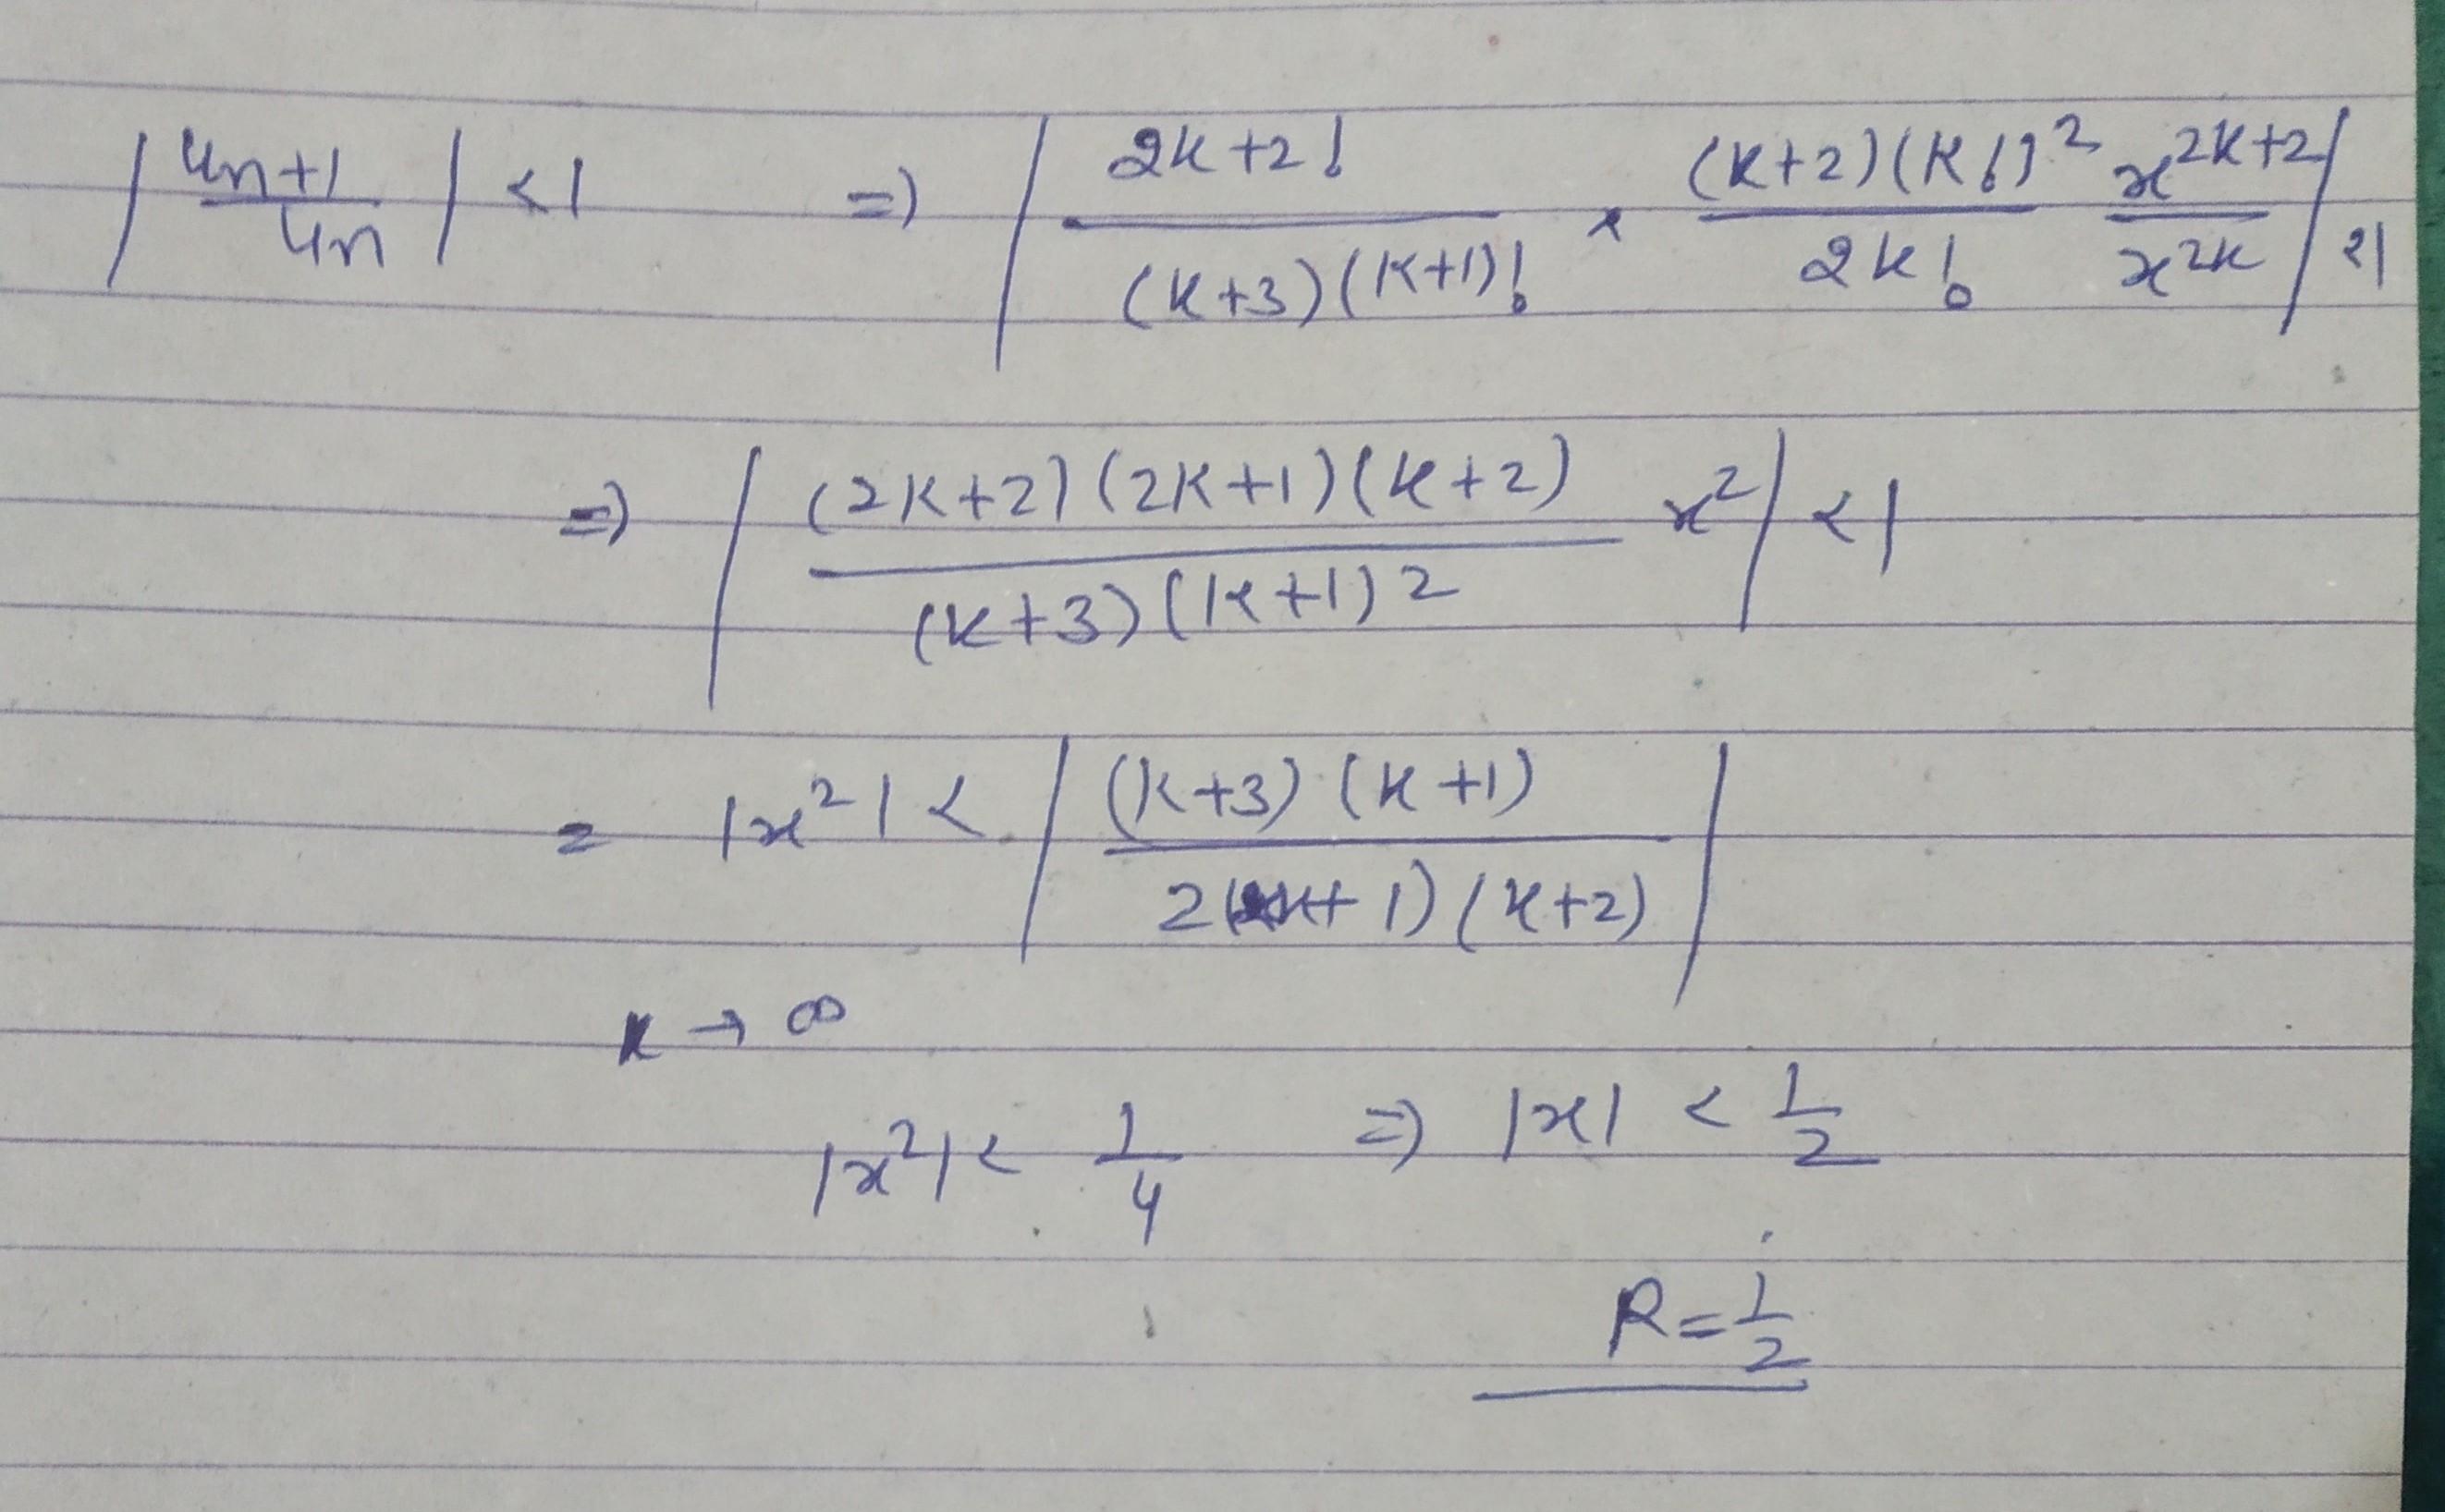 |un+1/un| < 1 => |2k+2!/(k+3)(k+1)! × (k+2)(k!)²/2k! x^{2k+2}/x^{2k}| < 1
=> |(2k+2)(2k+1)(k+2)/(k+3)(k+1)2 x²| < 1
= |x²| < |(k+3)(k+1)/2(2k+1)(k+2)|
k → ∞
|x²| < 1/4 => |x| < 1/2
R = 1/2